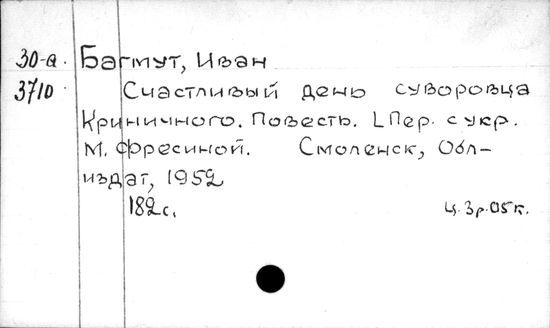 30-а. Багмут, Иван
3710 Счастливый день суворовца
Криничного. Повесть. [Пер. с укр.
М. Фресиной. Смоленск, Обл-
издат, 1952
182 с. Ц. 3 р. 05 к.